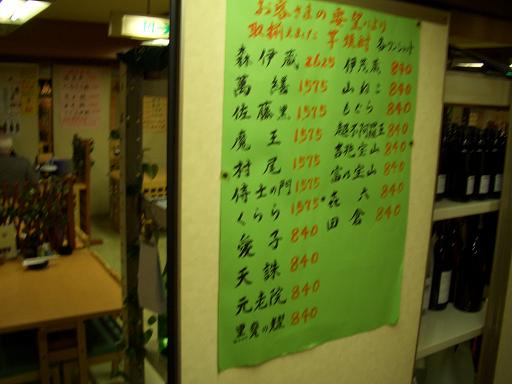 お客さまの要望により
取揃えました 芋焼酎 各ワンショット
森伊蔵 2625
萬膳 1575
佐藤黒 1575
魔王 1575
村尾 1575
侍士の門 1575
くらら 1575
愛子 840
天誅 840
元老院 840
黒兒の耀 840
伊茂蔵 840
山ねこ 840
もぐら 840
越不阿羅王 840
吉兆宝山 840
富乃宝山 840
㐂六 840
田倉 840